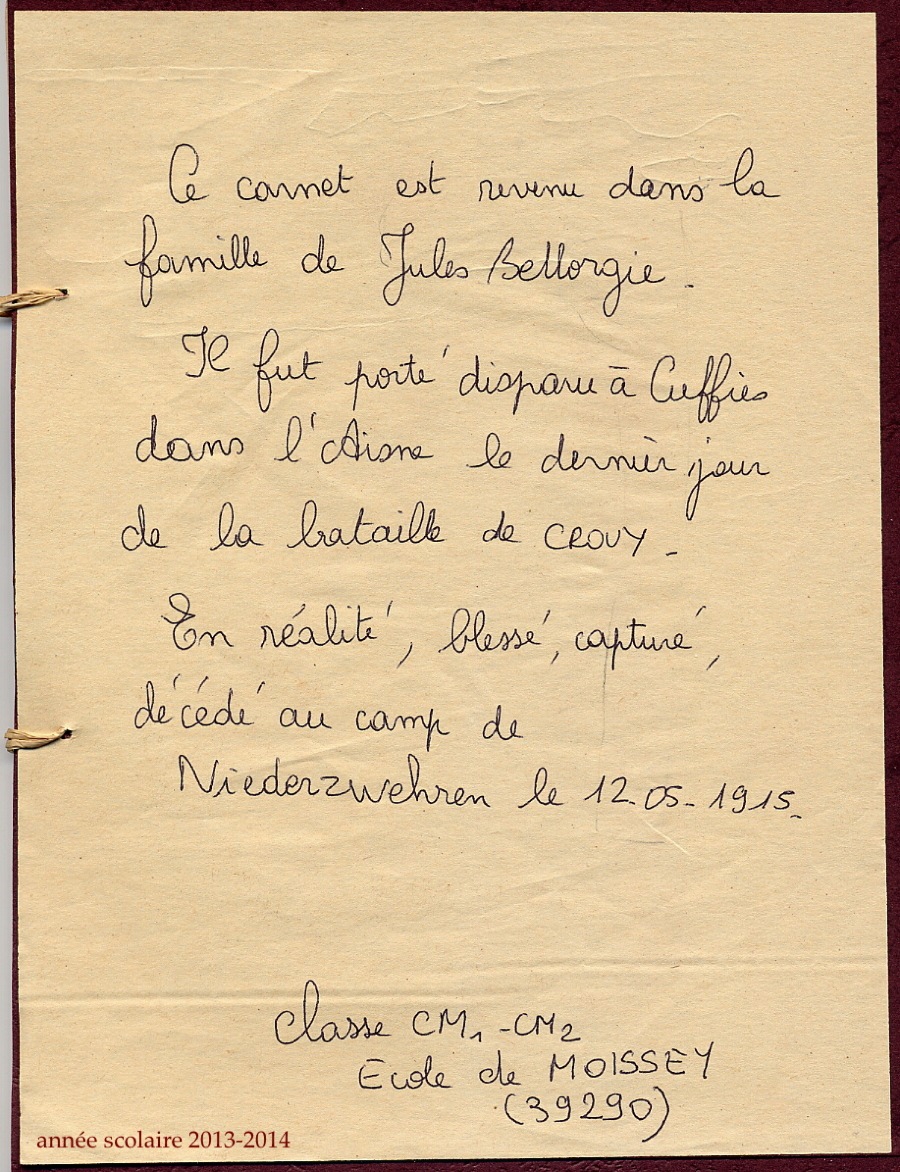 Ce carnet est revenu dans la
famille de Jules Bellorgie.
Il fut porté disparu à Cuffies
dans l'Aisne le dernier jour
de la bataille de CROUY.
En réalité, blessé, capturé,
décédé au camp de
Niederzwehren le 12-05-1915.
Classe CM1-CM2
Ecole de MOISSEY
(39290)
année scolaire 2013-2014